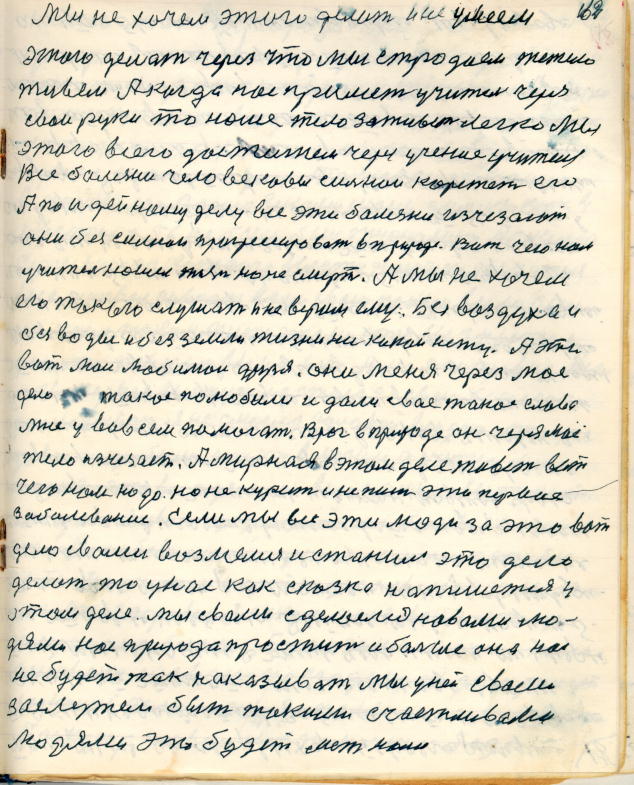 Мы не хочем этого делат и не умеем 162
этого делат через что мы стродаем тежело
живем А когда нас примет учител через
свои руки то ноше тело заживет легко Мы
этого всего достигнем через учение учителя
Все болезни человековы силной коретат его
А по идейному делу все эти болезни изчезают
они безсилнои прогресироват в природе. Вот чего нам
учител нашел жизн но не смерт. А мы не хочем
его такого слушат и не верим ему. Без воздуха и
без воды и без земли жизни ни какой нету. А эти
вот мои любимои друзя. они меня через мое
дело такое полюбили и дали свое такое слово
мне у во всем помогат. Враг в природе он через мое
тело изчезает. А мирная в этом деле живет вот
чего нам надо. но не курит и не пит это первое
заболевание. Если мы все эти люди за это вот
дело свами возмемся и станим это дело
делат то у нас как сказка напишется у
этом деле. мы свами сделаемся новами лю-
дями нас природа простит и болше она нас
не будет так наказыват мы у ней свами
заслужем быт такими счастливами
людями это будет мест нами